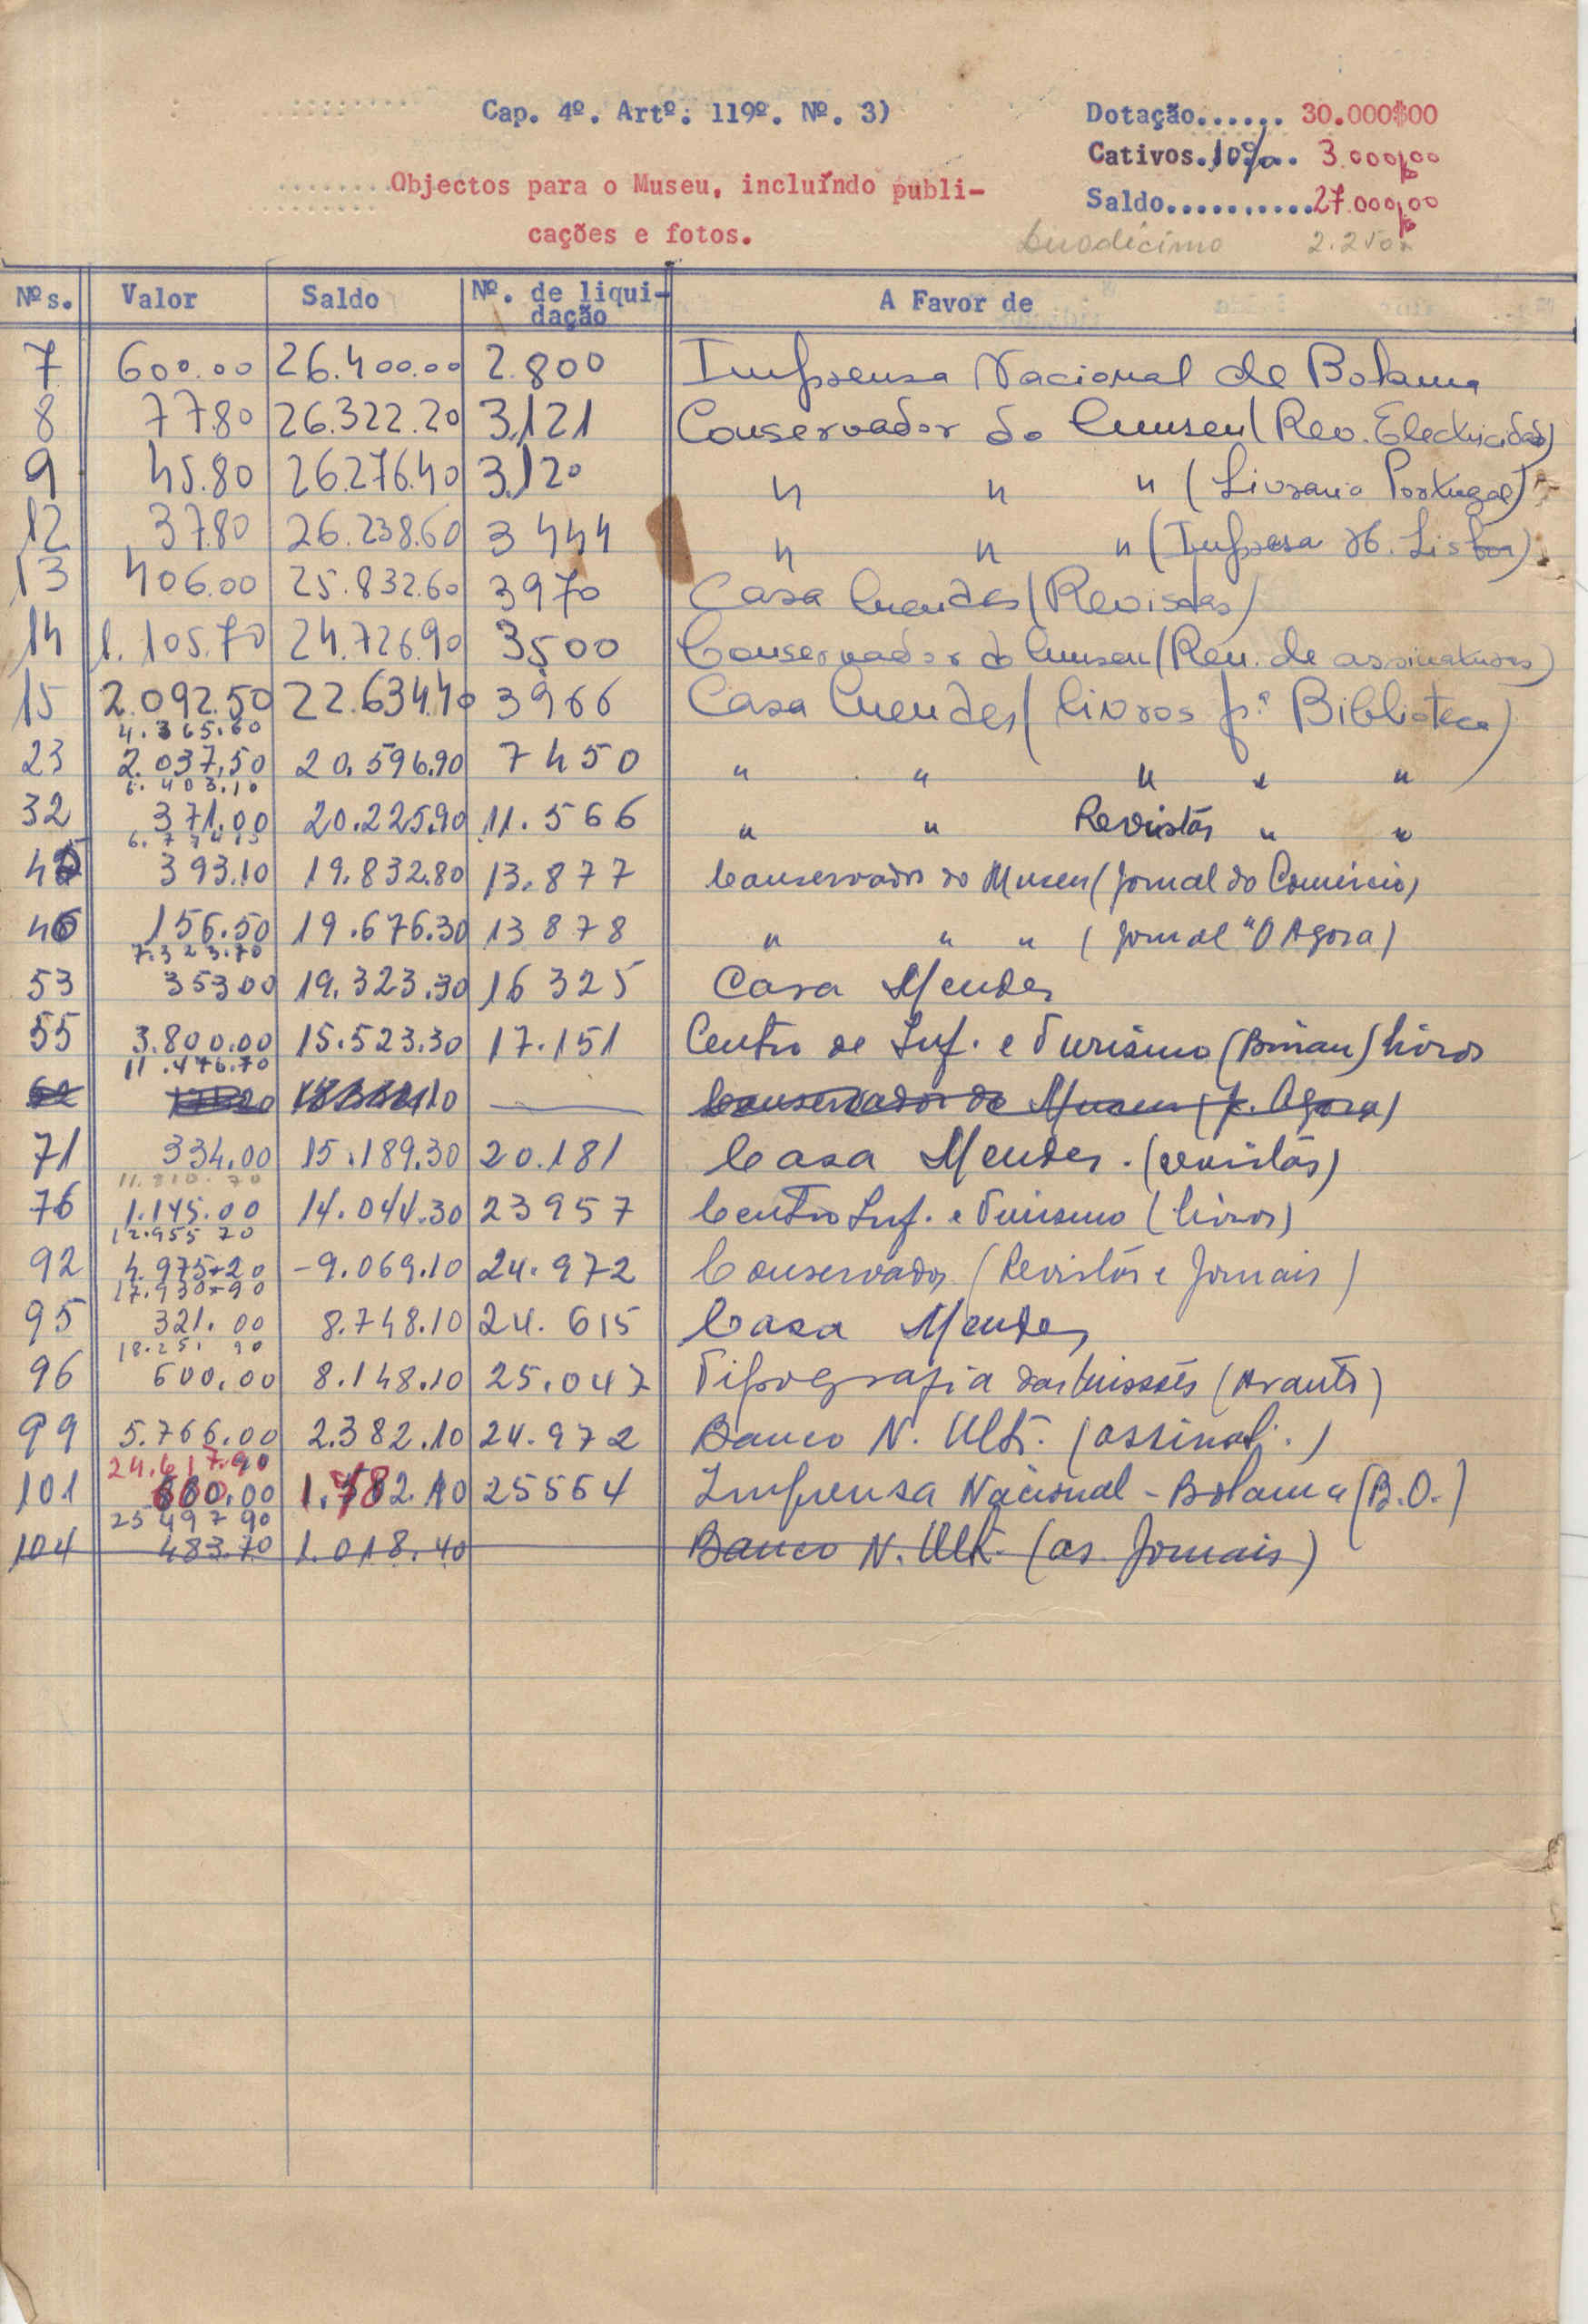 Cap. 4º. Artº. 119º. Nº. 3)
Dotação...... 30.000$00
Cativos.10%.. 3.000$00
Objectos para o Museu, incluíndo publi-
Saldo..........27.000$00
cações e fotos.
Duodécimo 2.250$
Nºs. Valor Saldo Nº. de liqui- A Favor de
dação
7 600.00 26.400.00 2.800 Imprensa Nacional de Bolama
8 77.80 26.322.20 3.121 Conservador do Museu (Rev. Electricidade)
9 45.80 26.276.40 3.120 " " " (Livraria Portugal)
12 37.80 26.238.60 3444 " " " (Impresa N. Lisboa)
13 406.00 25.832.60 3970 Casa Mendes (Revistas)
14 1.105.70 24.726.90 3500 Conservador do Museu (Ren. de assinaturas)
15 2.092.50 22.634.40 3966 Casa Mendes (livros pª Biblioteca)
4.365.60
23 2.037,50 20.596.90 7450 " " " " "
6.403.10
32 371.00 20.225.90 11.566 " " Revistas " "
6.774.10
45 393.10 19.832.80 13.877 Conservador do Museu (Jornal do Comércio)
46 156.50 19.676.30 13878 " " " (Jornal "O Agora)
7.323.70
53 353.00 19.323.30 16325 Casa Mendes
55 3.800.00 15.523.30 17.151 Centro de Inf. e Turismo (Bissau) livros
11.476.70
Conservador do Museu (J. Agora)
71 334.00 15.189.30 20.181 Casa Mendes. (revistas)
11.810.70
76 1.145.00 14.044.30 23957 Centro Inf. e Turismo (livros)
12.955 70
92 4.975.20 -9.069.10 24.972 Conservador (Revistas e Jornais)
17.930.90
95 321.00 8.748.10 24.615 Casa Mendes
18.251 90
96 600.00 8.148.10 25.047 Tipografia das Missões (Arauto)
99 5.766.00 2.382.10 24.972 Banco N. Ult. (assinat.)
24.617.90
101 880.00 1.502.10 25564 Imprensa Nacional - Bolama (B.O.)
25 497 90
104 483.70 1.018.40 Banco N. Ult. (as. Jornais)